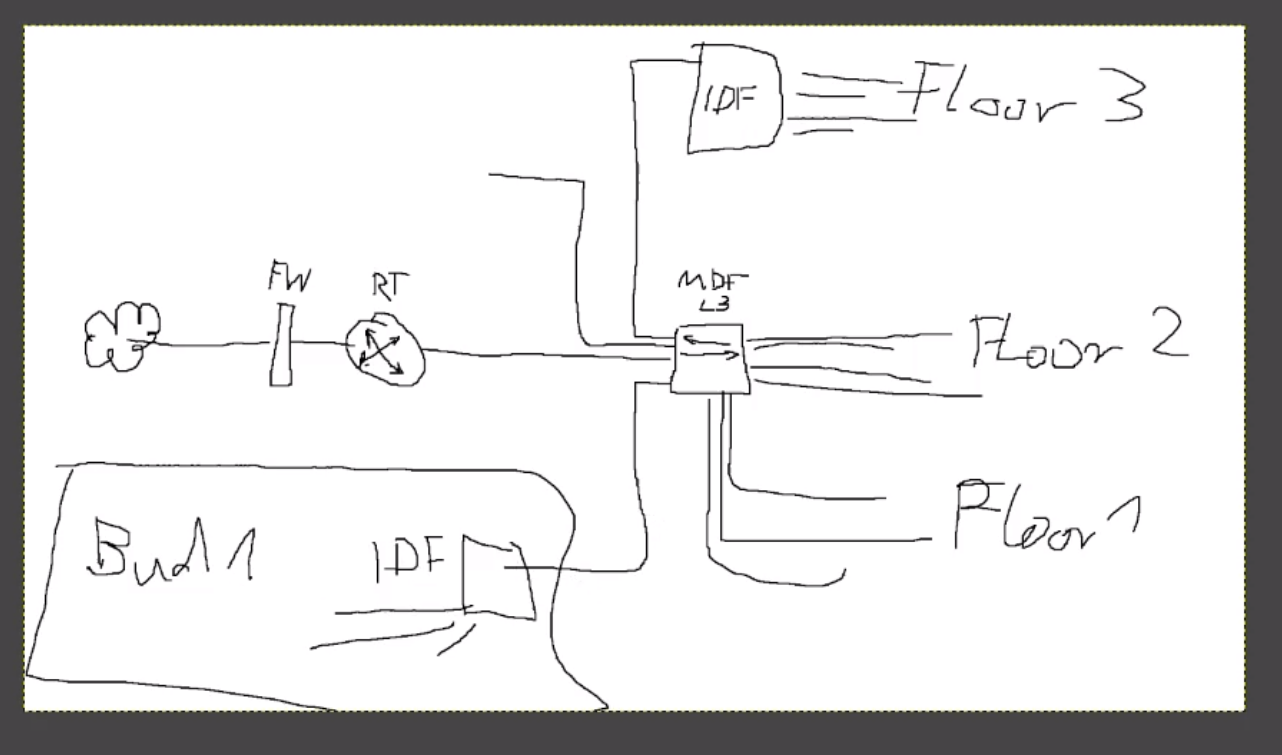 IDF
Floor 3
FW
RT
MDF
L3
Floor 2
Floor 1
Bud 1
IDF